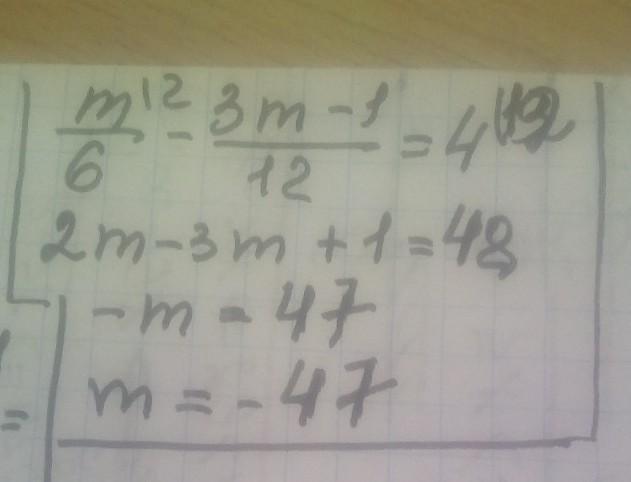 m/6 |2 - (3m-1)/12 = 4 (12
2m-3m+1=48
-m = 47
m = -47
=